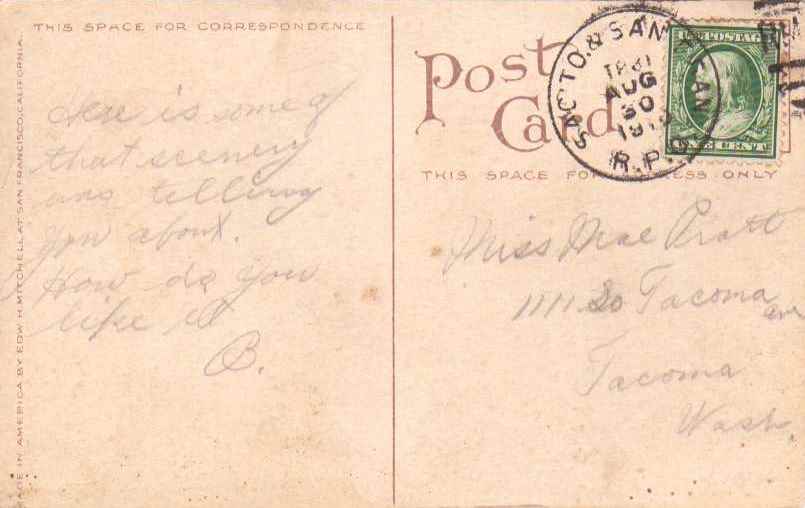 THIS SPACE FOR CORRESPONDENCE
Here is some of
that scenery
was telling
you about.
How do you
like it
B.
MADE IN AMERICA BY EDW. H. MITCHELL, AT SAN FRANCISCO, CALIFORNIA.
Post
Card
THIS SPACE FOR ADDRESS ONLY
SAC'TO. & SAN FRAN.
TR31
AUG
30
R.P.O.
U.S. POSTAGE
ONE CENT
Miss Mae Pratt
1111 So Tacoma
ave
Tacoma
Wash.